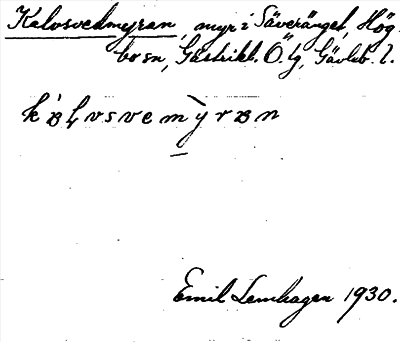 Kalvsvedmyran, myr i Säveränget, Hög-
bo sn, Gästrikl. Ö. tg, Gävleb. l.
Emil Lemhagen 1930.